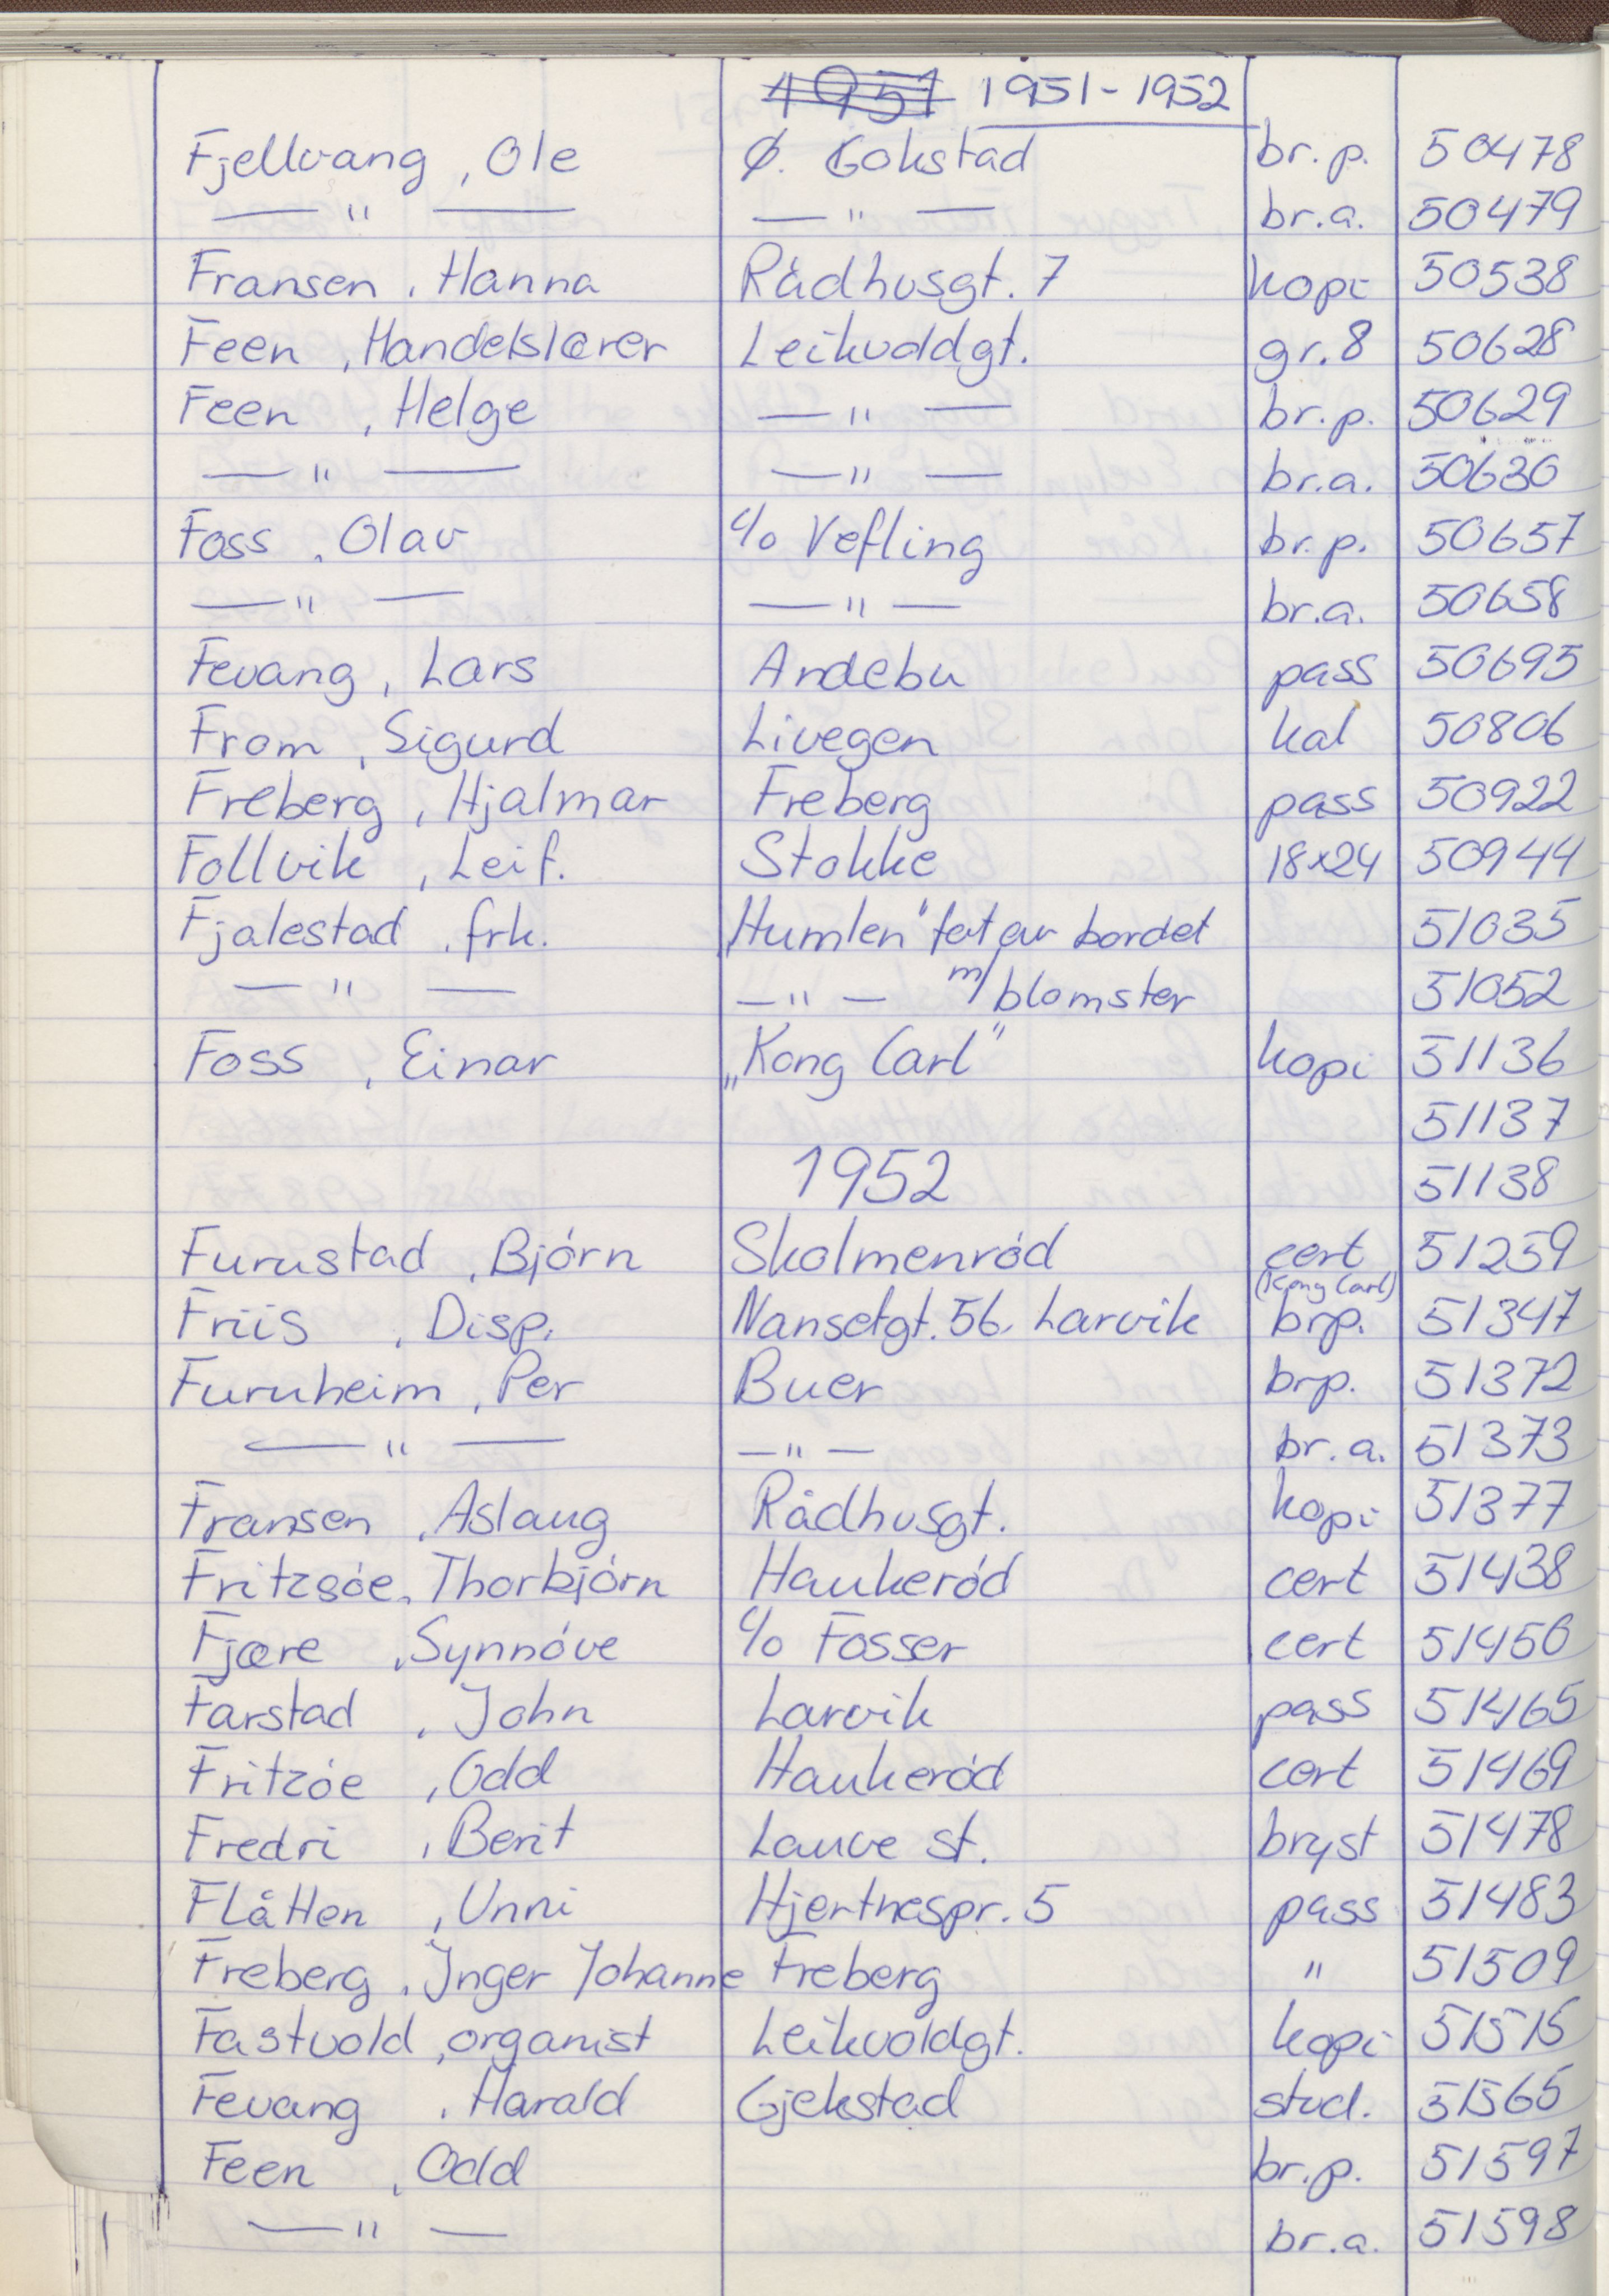 1951 1951-1952
Fjellvang, Ole Ø. Gokstad br.p. 50478
— " — — " — br.a. 50479
Fransen, Hanna Rådhusgt. 7 kopi 50538
Feen, Handelslærer Leikvoldgt. gr.8 50628
Feen, Helge — " — br.p. 50629
— " — — " — br.a. 50630
Foss, Olav c/o Vefling br.p. 50657
— " — — " — br.a. 50658
Fevang, Lars Andebu pass 50695
From, Sigurd Livegen kal 50806
Freberg, Hjalmar Freberg pass 50922
Follvik, Leif. Stokke 18x24 50944
Fjalestad, frk. „Humlen" tat av bordet 51035
— " — — " — m/blomster 51052
Foss, Einar „Kong Carl" kopi 51136
51137
1952 51138
Furustad, Bjórn Skolmenród cert 51259
(Kong Carl)
Friis, Disp. Nansetgt. 56. Larvik brp. 51347
Furuheim, Per Buer brp. 51372
— " — — " — br.a. 51373
Fransen, Aslaug Rådhusgt. kopi 51377
Fritzsóe, Thorbjórn Haukeród cert 51438
Fjære, Synnóve c/o Fosser cert 51450
Farstad, John Larvik pass 51465
Fritzóe, Odd Haukeród cert 51469
Fredri, Berit Lauve st. bryst 51478
Flåtten, Unni Hjertnespr. 5 pass 51483
Freberg, Inger Johanne Freberg " 51509
Fastvold, organist Leikvoldgt. kopi 51515
Fevang, Harald Gjekstad stud. 51565
Feen, Odd br.p. 51597
— " — br.a. 51598